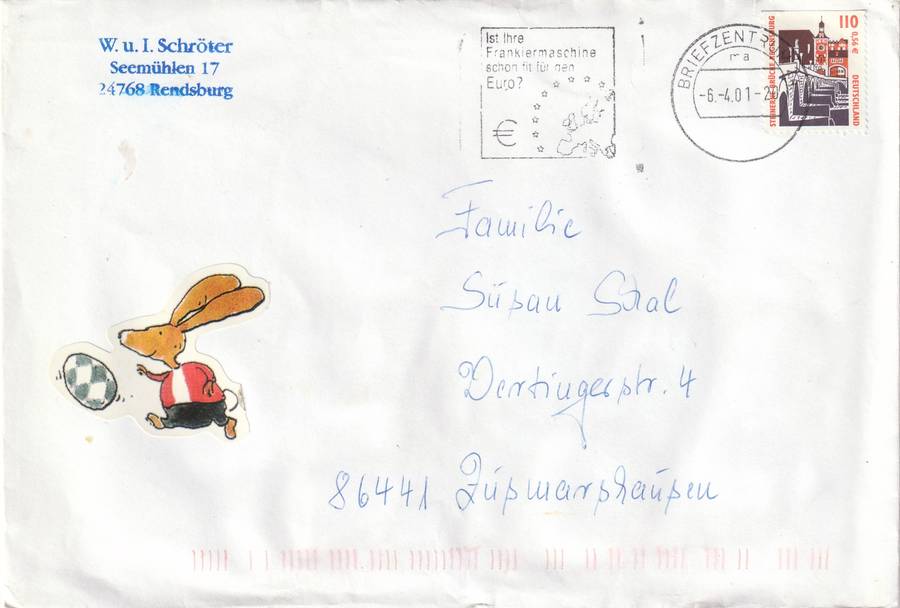 W. u. I. Schröter
Seemühlen 17
24768 Rendsburg
Ist Ihre
Frankiermaschine
schon fit für den
Euro?
€
BRIEFZENTR
ma
-6.-4.01-2
110
0,56 €
STEINERNE BRÜCKE REGENSBURG
DEUTSCHLAND
Familie
Stal
Vertingerstr. 4
86441 Zusmarshausen